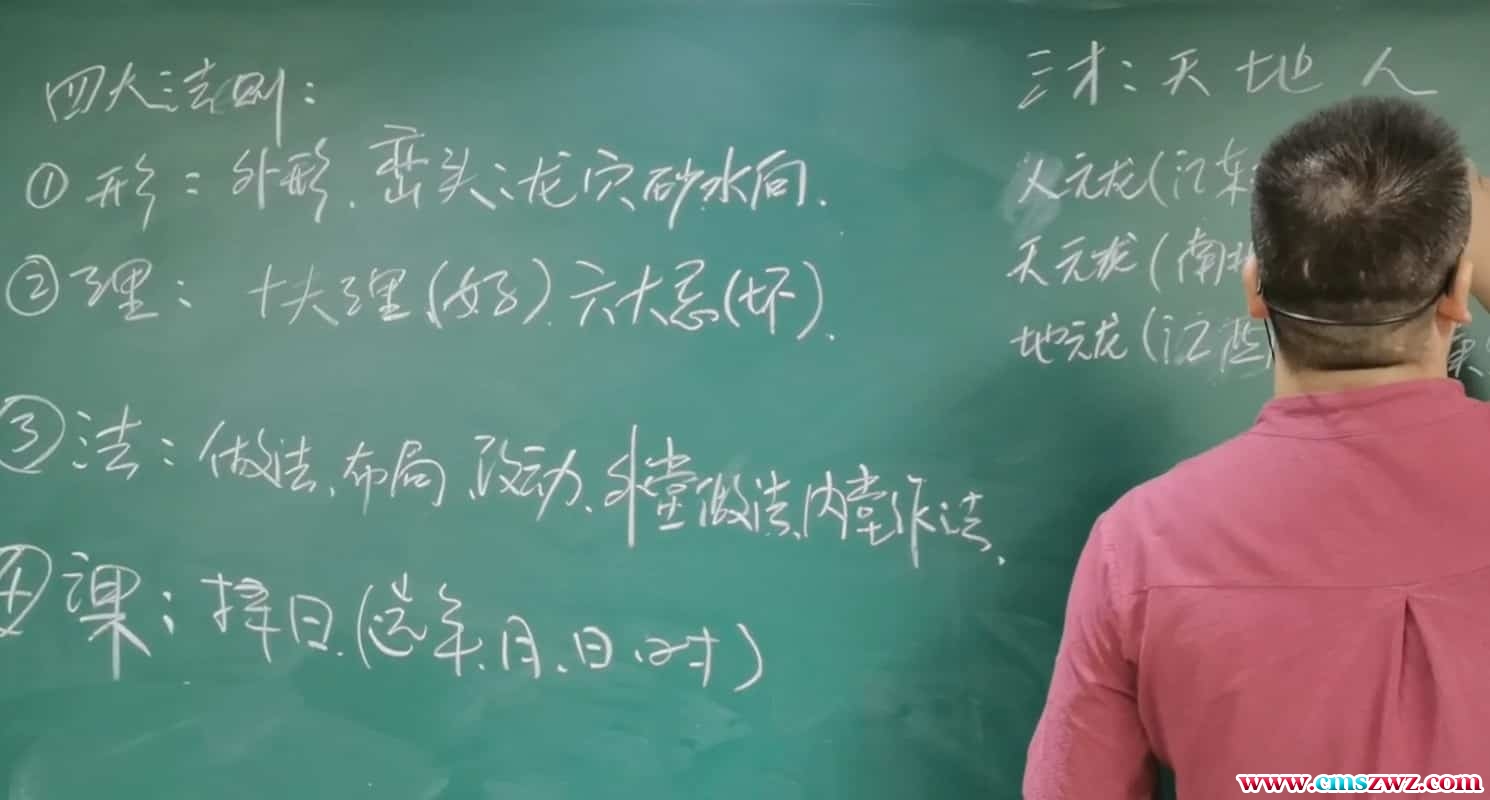 四大法则：
①形：外形、峦头：龙穴砂水向.
②理：十大理(好).六大忌(坏).
③法：做法、布局、改动、外堂做法、内堂作法、
④课：择日.(选年、月、日、时)
三才：天地人
人元龙(江东
天元龙(南北
地元龙(江西
www.cmszwz.com